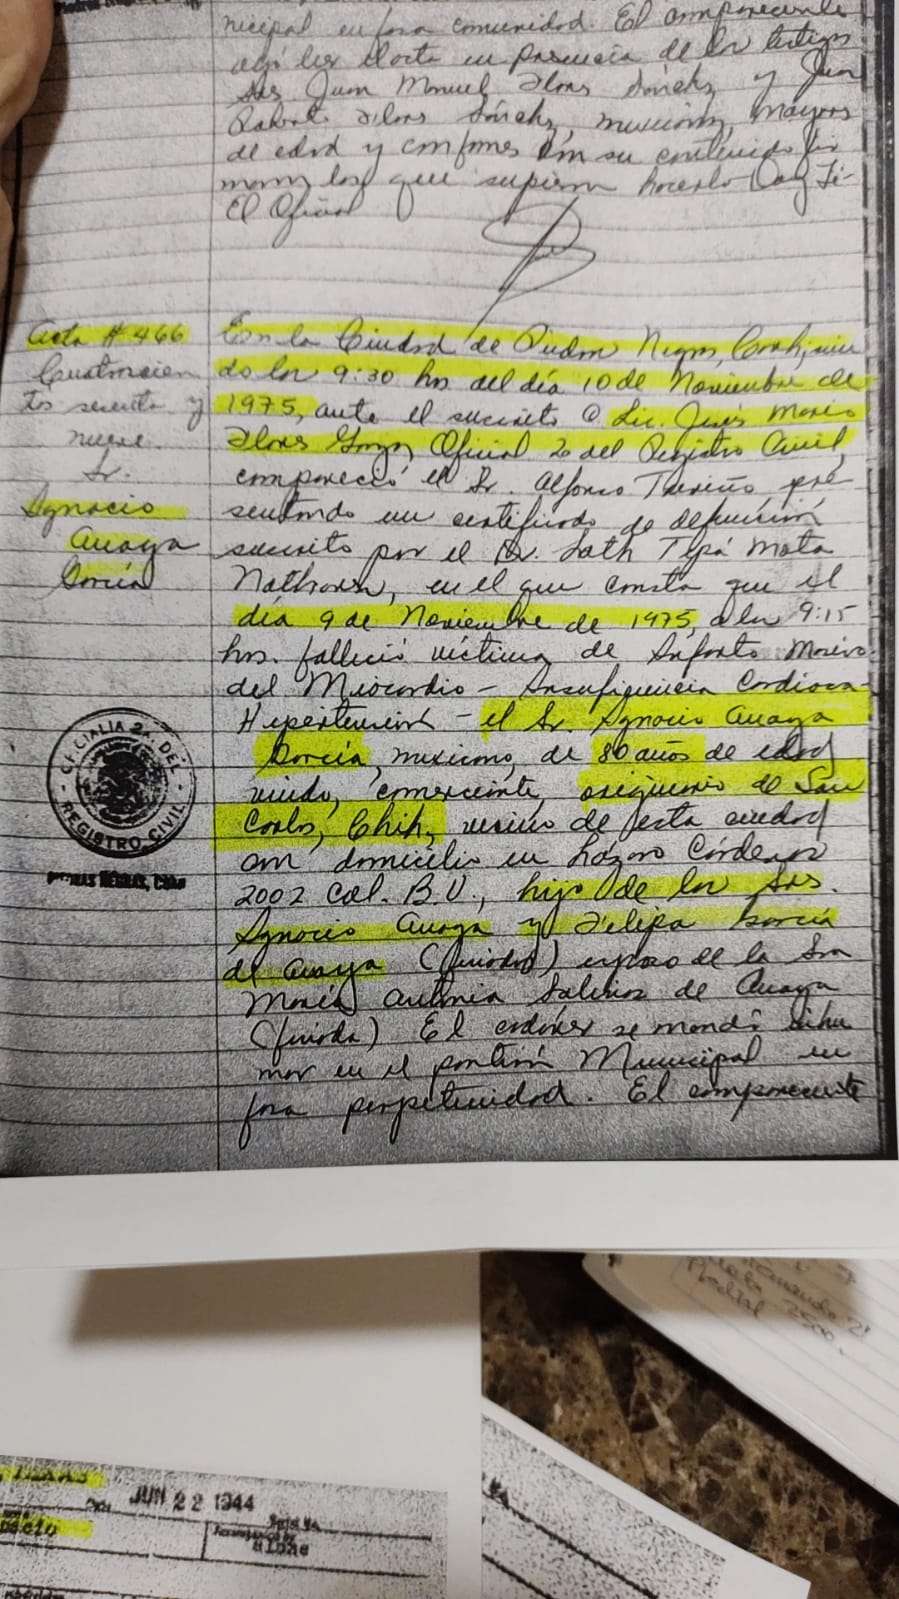 nicipal en fosa comunidad. El compareciente
oyó leer el acta en presencia de los testigos
Srs Juan Manuel Flores Sánchz y Juan
Roberto Flores Sánchz, mexicanos, mayores
de edad y conformes con su contenido fir
maron los que supieron hacerlo Doy Fé-
El Oficial
Acta # 466
Cuatrocien
tos sesenta y
nueve.
Sr.
Ignacio
Anaya
García
En la Ciudad de Piedras Negras, Coah, sien
do las 9:30 hrs del día 10 de Noviembre de
1975, ante el suscrito C. Lic. Jesús Mario
Flores Garza, Oficial 2o del Registro Civil,
compareció el Sr. Alfonso Treviño, pre
sentando un certificado de defunción
suscrito por el Dr. Tepá Mota
en el que consta que el
día 9 de Noviembre de 1975, a las 9:15
hrs. falleció víctima de Infarto Masivo
del Miocardio - Insuficiencia Cardiaca
Hipertensión - el Sr. Ignacio Anaya
García, mexicano, de 80 años de edad
viudo, comerciante, originario de San
Carlos, Chih, vecino de esta ciudad
con domicilio en Lázaro Cárdenas
2002 Col. B.V., hijo de los Srs.
Ignacio Anaya y Felipa García
de Anaya (finados) esposo de la Sra
María Antonia Salinas de Anaya
(finada) El cadáver se mandó inhu
mar en el panteón Municipal en
fosa perpetuidad. El compareciente
OFICIALIA 2A. DEL
REGISTRO CIVIL
PIEDRAS NEGRAS, COAH
TEXAS
JUN 22 1944
alone